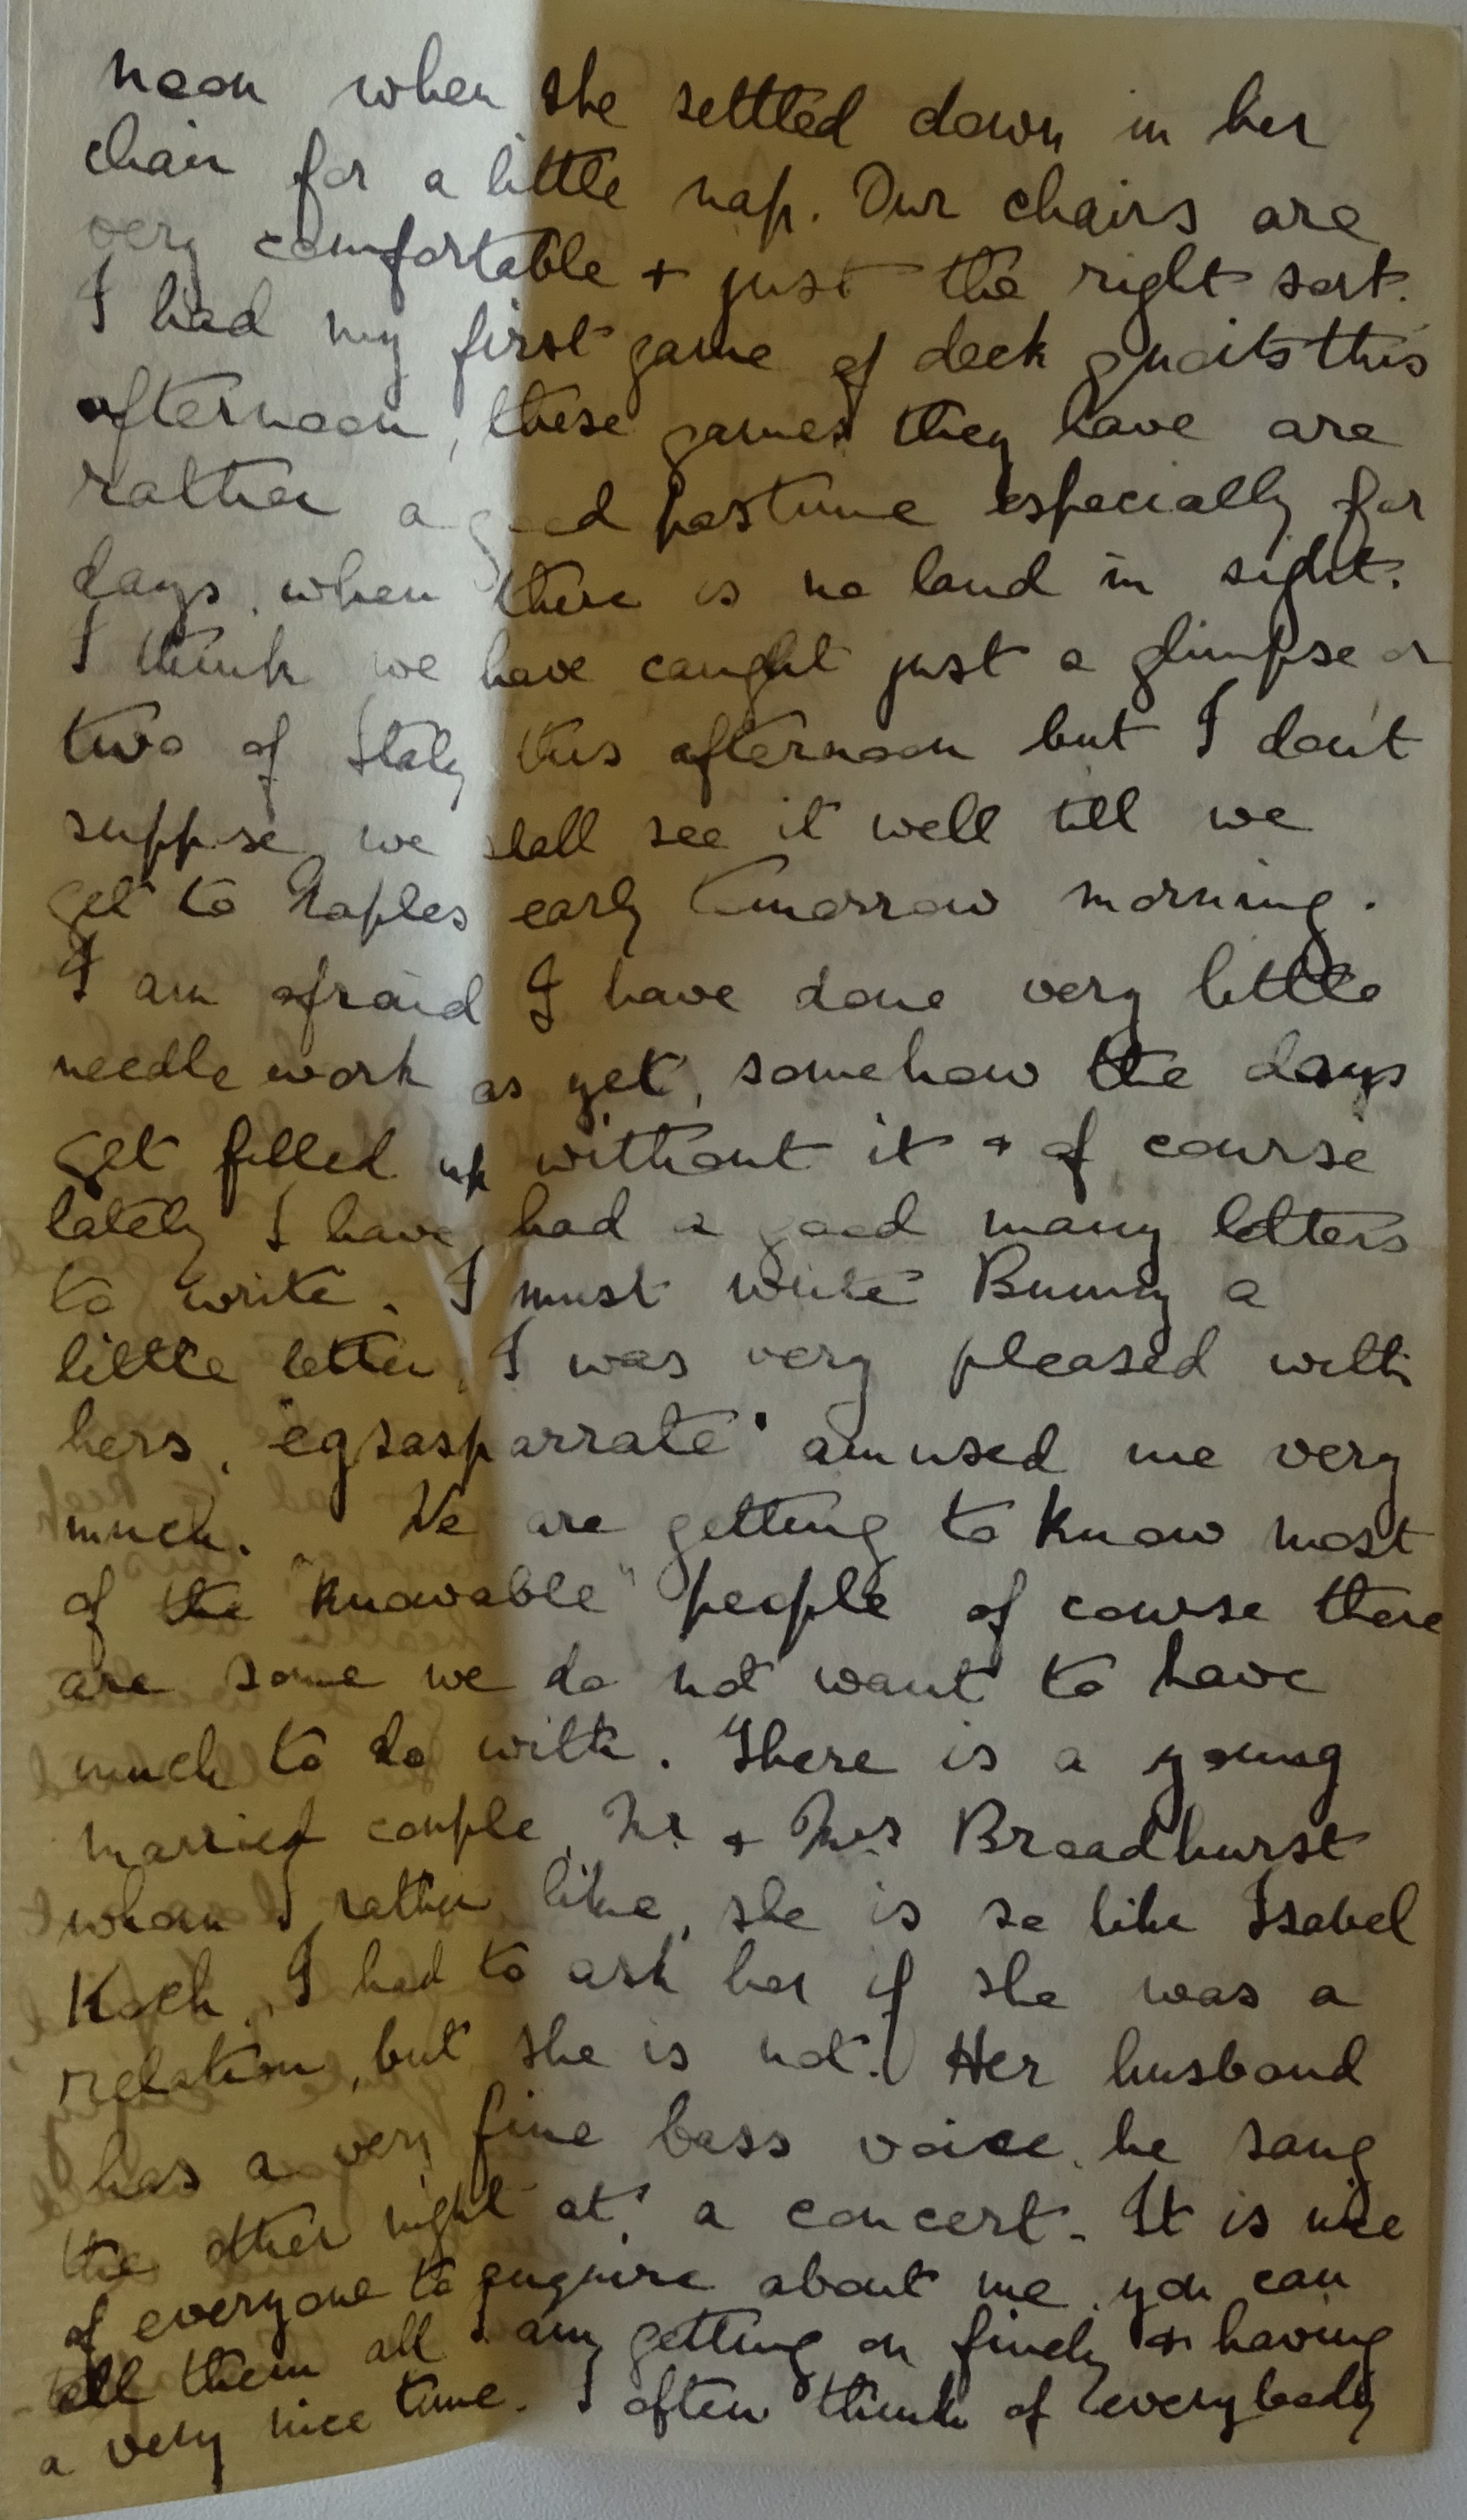 noon when she settled down in her
chair for a little nap. Our chairs are
very comfortable + just the right sort.
I had my first game of deck quoits this
afternoon, these games they have are
rather a good pastime especially for
days when there is no land in sight.
I think we have caught just a glimpse or
two of Italy this afternoon but I don't
suppose we shall see it well till we
get to Naples early tomorrow morning.
I am afraid I have done very little
needle work as yet, somehow the days
get filled up without it + of course
lately I have had a good many letters
to write. I must write Bunny a
little letter, I was very pleased with
hers, "egsasparrate" amused me very
much. We are getting to know most
of the "knowable" people of course there
are some we do not want to have
much to do with. There is a young
married couple, Mr. + Mrs Broadhurst
whom I rather like, she is so like Isabel
Koch, I had to ask her if she was a
relation, but she is not. Her husband
has a very fine bass voice, he sang
the other night at a concert. It is nice
of everyone to enquire about me, you can
tell them all I am getting on finely + having
a very nice time. I often think of everybody